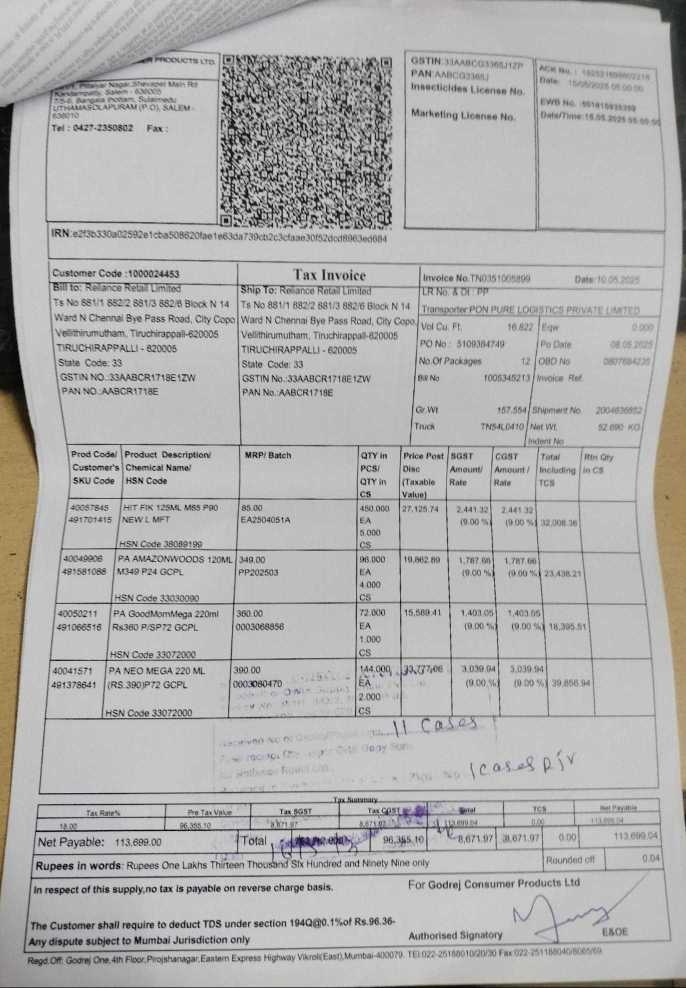 PRODUCTS LTD.
Nagar,Shevapet Main Rd
Kandampatty, Salem - 636005
7/5-6, Bangala thottam, Sulaimedu
UTHAMASOLAPURAM (P.O), SALEM -
636010
Tel : 0427-2350802 Fax :
GSTIN:33AABCG3365J1ZP
PAN:AABCG3365J
Insecticides License No.
Marketing License No.
ACK No. :
Date: 15/05/2025 05:00:00
EWB No. :
Date/Time:15.05.2025
IRN:e2f3b330a02592e1cba508620fae1e63da739cb2c3cfaae30f52dcd8963ed684
Customer Code :1000024453
Tax Invoice
Invoice No.TN0351005899 Date:10.05.2025
Bill to: Reliance Retail Limited
Ts No 881/1 882/2 881/3 882/6 Block N 14
Ward N Chennai Bye Pass Road, City Copo
Vellithirumutham, Tiruchirappali-620005
TIRUCHIRAPPALLI - 620005
State Code: 33
GSTIN NO.:33AABCR1718E1ZW
PAN NO.:AABCR1718E
Ship To: Reliance Retail Limited
Ts No 881/1 882/2 881/3 882/6 Block N 14
Ward N Chennai Bye Pass Road, City Copo
Vellithirumutham, Tiruchirappali-620005
TIRUCHIRAPPALLI - 620005
State Code: 33
GSTIN NO.:33AABCR1718E1ZW
PAN No.:AABCR1718E
LR No. & Dt : PP
Transporter:PON PURE LOGISTICS PRIVATE LIMITED
Vol Cu. Ft. 16.822 Eqw 0.000
PO No : 5109384749 Po Date 08.05.2025
No.Of Packages 12 OBD No 0807684235
Bill No 1005345213 Invoice Ref.
Gr.Wt 157.554 Shipment No 2004636852
Truck TN54L0410 Net Wt. 52.690 KG
Indent No
Prod Code/ Product Description/ MRP/ Batch QTY in Price Post SGST CGST Total Rtn Qty
Customer's Chemical Name/ PCS/ Disc Amount/ Amount / Including in CS
SKU Code HSN Code QTY in (Taxable Rate Rate TCS
CS Value)
40057845 HIT FIK 125ML M85 P90 85.00 450.000 27,125.74 2,441.32 2,441.32
491701415 NEW L MFT EA2504051A EA (9.00 %) (9.00 %) 32,008.36
5.000
HSN Code 38089199 CS
40049906 PA AMAZONWOODS 120ML 349.00 96.000 19,862.89 1,787.66 1,787.66
491581088 M349 P24 GCPL PP202503 EA (9.00 %) (9.00 %) 23,438.21
4.000
HSN Code 33030090 CS
40050211 PA GoodMornMega 220ml 360.00 72.000 15,589.41 1,403.05 1,403.05
491066516 Rs360 P/SP72 GCPL 0003068856 EA (9.00 %) (9.00 %) 18,395.51
1.000
HSN Code 33072000 CS
40041571 PA NEO MEGA 220 ML 390.00 144.000 33,777.06 3,039.94 3,039.94
491378641 (RS.390)P72 GCPL 0003080470 EA (9.00 %) (9.00 %) 39,856.94
2.000
HSN Code 33072000 CS
11 Cases
1 cases
Tax Summary
Tax Rate% Pre Tax Value Tax SGST Tax CGST Total TCS Net Payable
18.00 96,355.10 8,671.97 8,671.97 113,699.04 0.00 113,699.04
Net Payable: 113,699.00 Total 96,355.10 8,671.97 8,671.97 0.00 113,699.04
Rupees in words: Rupees One Lakhs Thirteen Thousand Six Hundred and Ninety Nine only Rounded off 0.04
In respect of this supply,no tax is payable on reverse charge basis.
For Godrej Consumer Products Ltd
The Customer shall require to deduct TDS under section 194Q@0.1%of Rs.96.36-
Any dispute subject to Mumbai Jurisdiction only
Authorised Signatory E&OE
Regd.Off: Godrej One,4th Floor,Pirojshanagar,Eastern Express Highway Vikroli(East),Mumbai-400079. TEl:022-25188010/20/30 Fax:022-251188040/8065/69